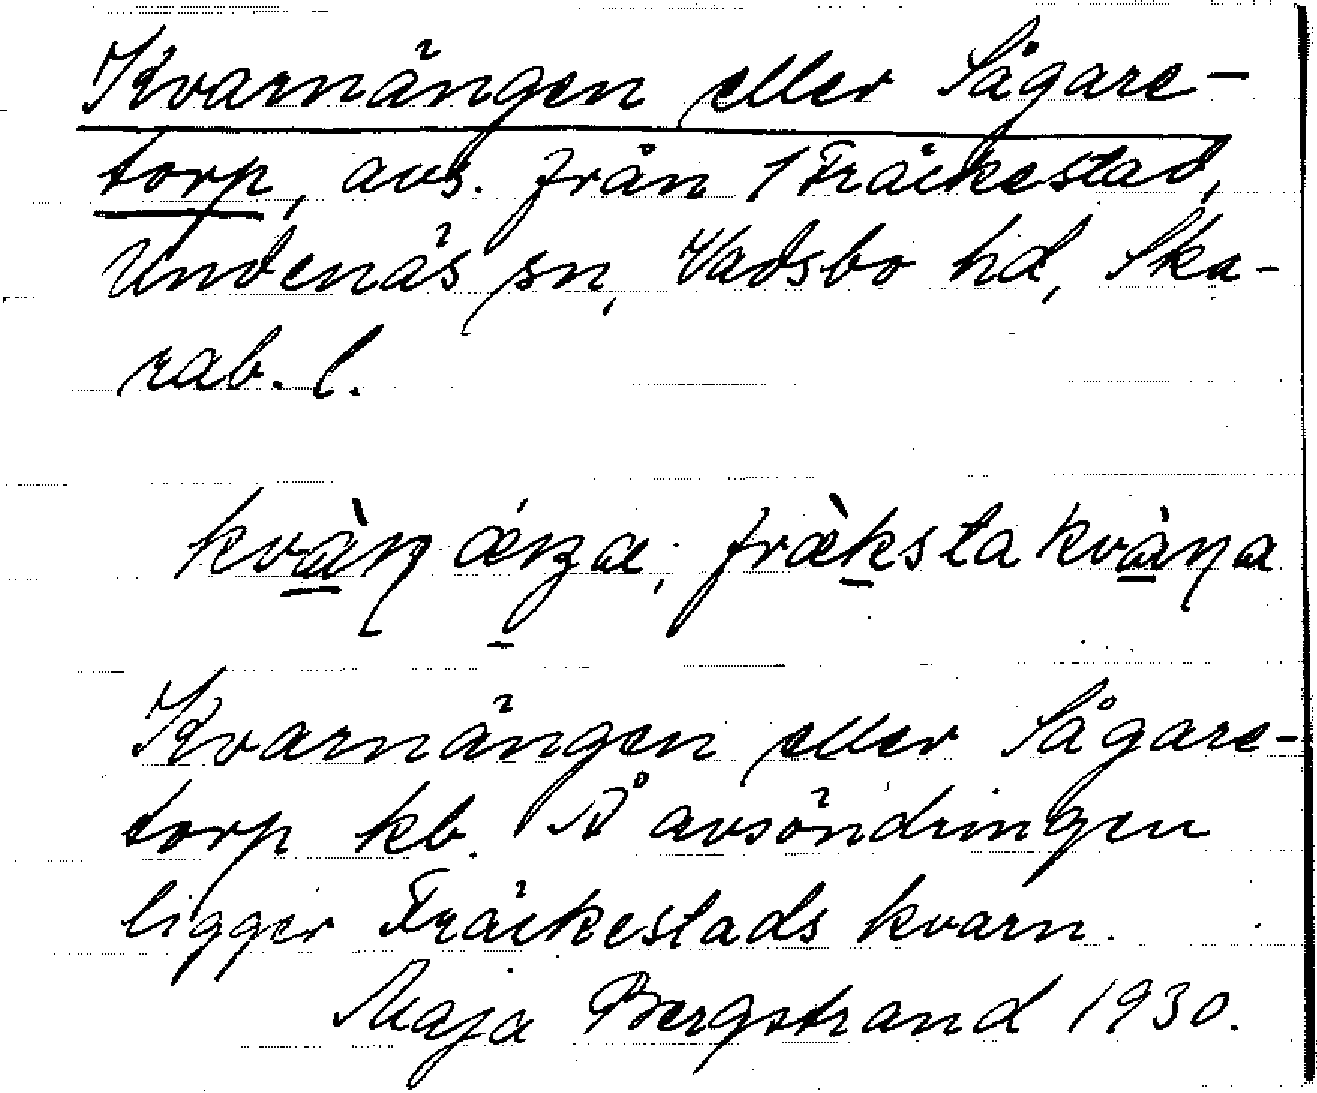 Kvarnängen eller Sågare-
torp, avs. från 1 Fräckestad,
Undenäs sn, Vadsbo hd, Ska-
rab. l.
kvàɳ æŋa, fræ̀kstakvàɳa
Kvarnängen eller Sågare-
torp kb. På avsöndringen
ligger Fräckestads kvarn.
Maja Bergstrand 1930.